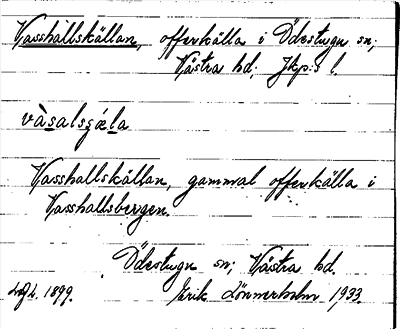 Vasshallskällan, offerkälla i Ödestugu sn;
Västra hd; Jkp:s l.
vàsalsɕæla
Vasshallskällan, gammal offerkälla i
Vasshallsbergen.
Ödestugu sn; Västra hd.
1899. Erik Lönnerholm 1933.